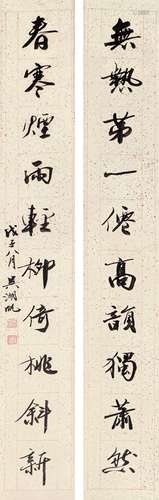 無熱第一僊高韻獨蕭然
春寒煙雨輕柳倚桃斜新
戊子月吳湖帆